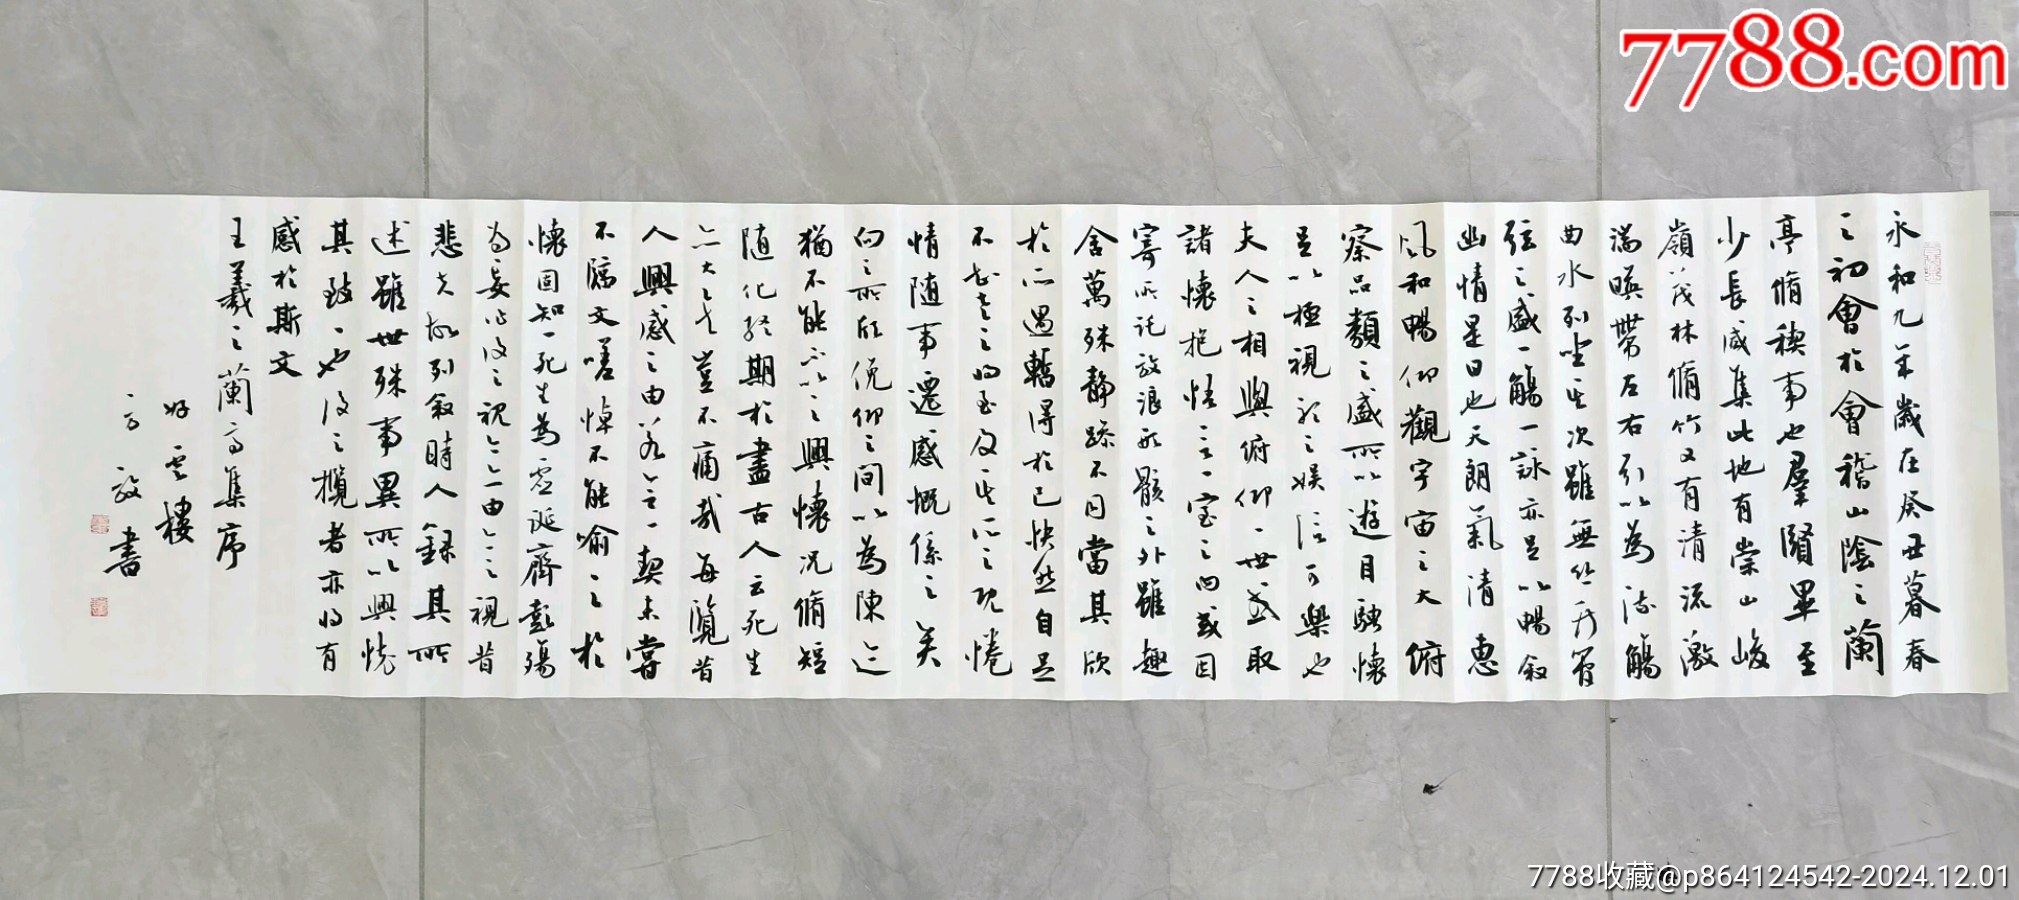 7788.com
永和九年歲在癸丑暮春
之初會於會稽山陰之蘭
亭脩稧事也羣賢畢至
少長咸集此地有崇山峻
嶺茂林脩竹又有清流激
湍暎帶左右引以為流觴
曲水列坐其次雖無絲竹管
弦之盛一觴一詠亦足以暢敘
幽情是日也天朗氣清惠
風和暢仰觀宇宙之大俯
察品類之盛所以遊目騁懷
足以極視聽之娛信可樂也
夫人之相與俯仰一世或取
諸懷抱悟言一室之內或因
寄所託放浪形骸之外雖趣
舍萬殊靜躁不同當其欣
於所遇暫得於己快然自足
不知老之將至及其所之既惓
情隨事遷感慨係之矣
向之所欣俛仰之間以為陳迹
猶不能不以之興懷況脩短
隨化終期於盡古人云死生
亦大矣豈不痛哉每覽昔
人興感之由若合一契未嘗
不臨文嗟悼不能喻之於
懷固知一死生為虛誕齊彭殤
為妄作後之視今亦由今之視昔
悲夫故列敘時人錄其所
述雖世殊事異所以興懷
其致一也後之攬者亦將有
感於斯文
王羲之蘭亭集序
好雲樓
書
7788收藏@p864124542-2024.12.01